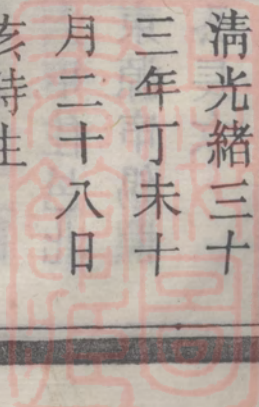 淸光緖三十
三年丁未十
月二十八日
亥時生